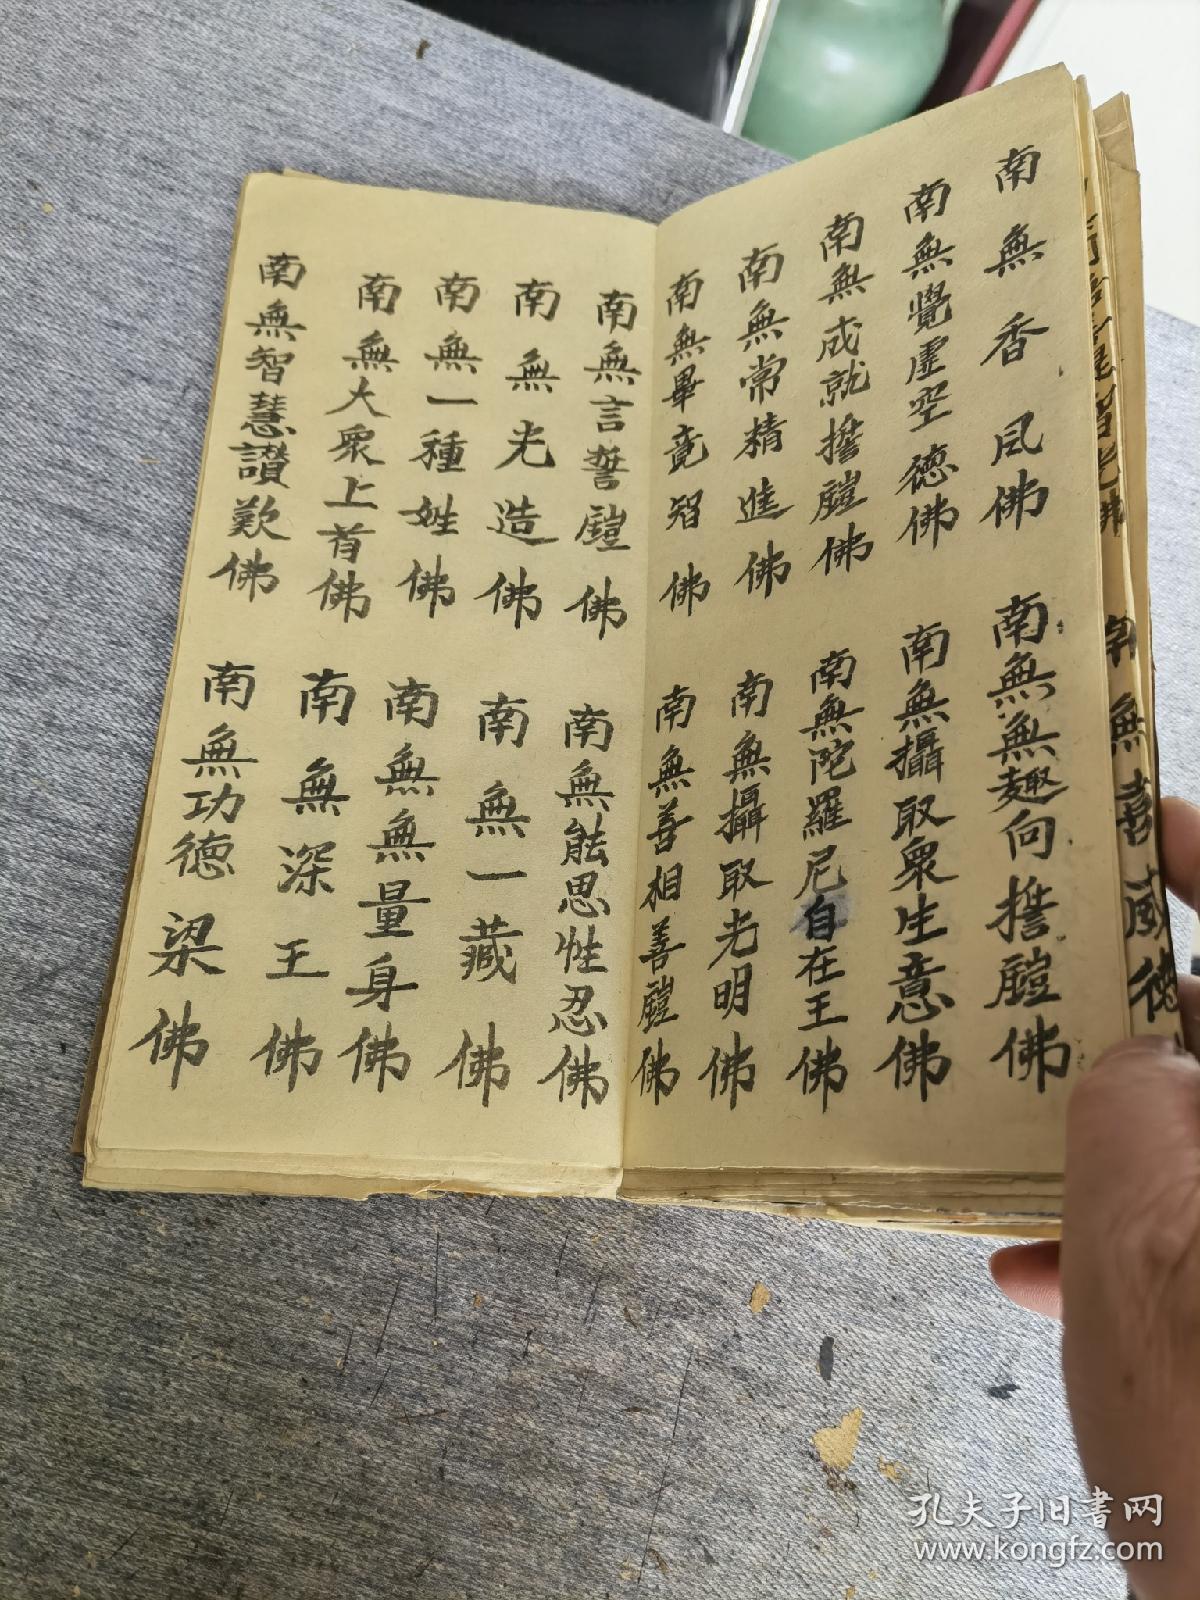 南無香風佛
南無無趣向擔鎧佛
南無覺虛空德佛
南無攝取衆生意佛
南無成就擔鎧佛
南無陀羅尼自在王佛
南無常精進佛
南無攝取光明佛
南無畢竟智佛
南無善相善鎧佛
南無言誓鎧佛
南無能思性忍佛
南無光造佛
南無一藏佛
南無一種姓佛
南無無量身佛
南無大衆上首佛
南無深王佛
南無智慧讃歎佛
南無功德梁佛
無喜威德
孔夫子旧书网
www.kongfz.com